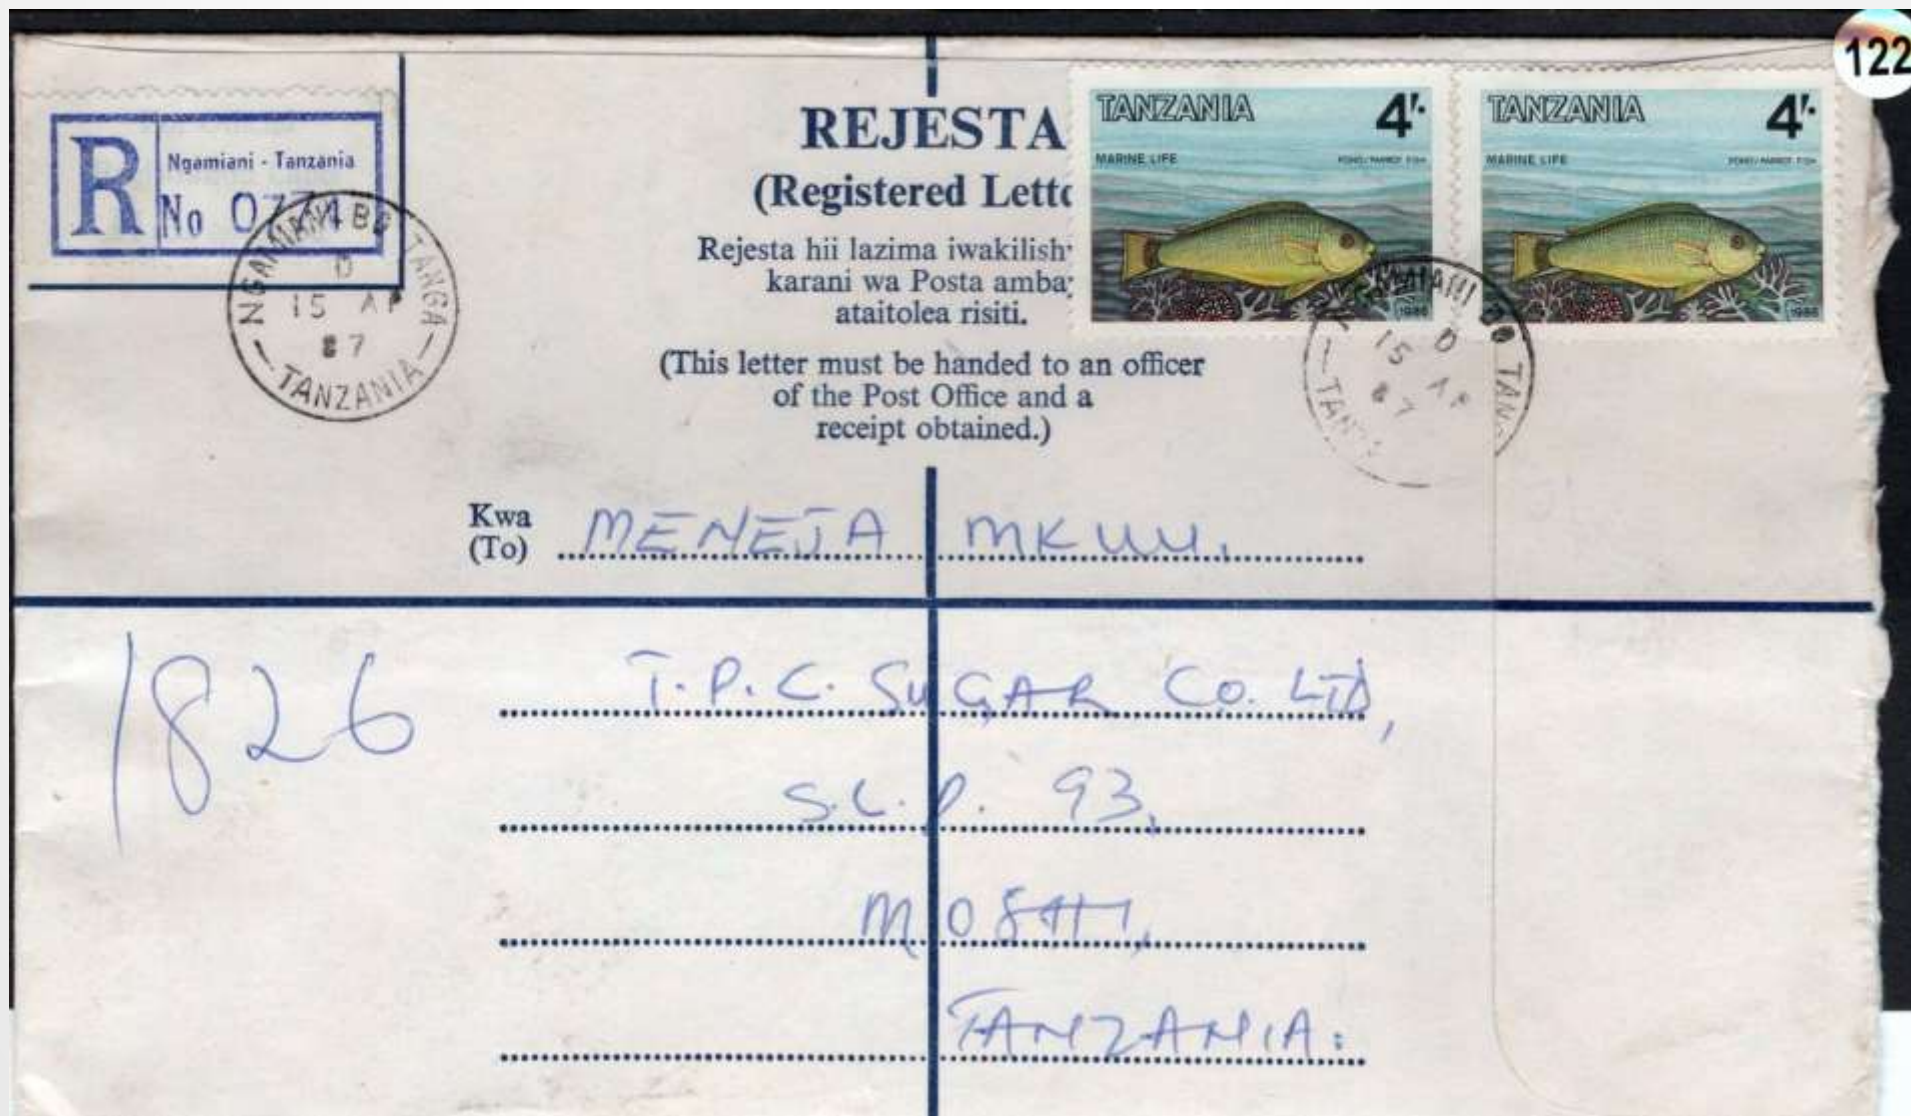 122
R
Ngamiani - Tanzania
No
NGAMIANI BO TANGA
D
15 AP
87
TANZANIA
REJESTA
(Registered
Rejesta hii lazima
karani wa Posta
ataitolea risiti.
(This letter must be handed to an officer
of the Post Office and a
receipt obtained.)
TANZANIA 4/-
MARINE LIFE PONO/PARROT FISH
1986
TANZANIA 4/-
MARINE LIFE PONO/PARROT FISH
1986
D
15 AP
87
Kwa MENEJA MKUU.
(To)
1826
T.P.C. SUGAR CO. LTD,
S.L.P. 93,
MOSHI,
TANZANIA.